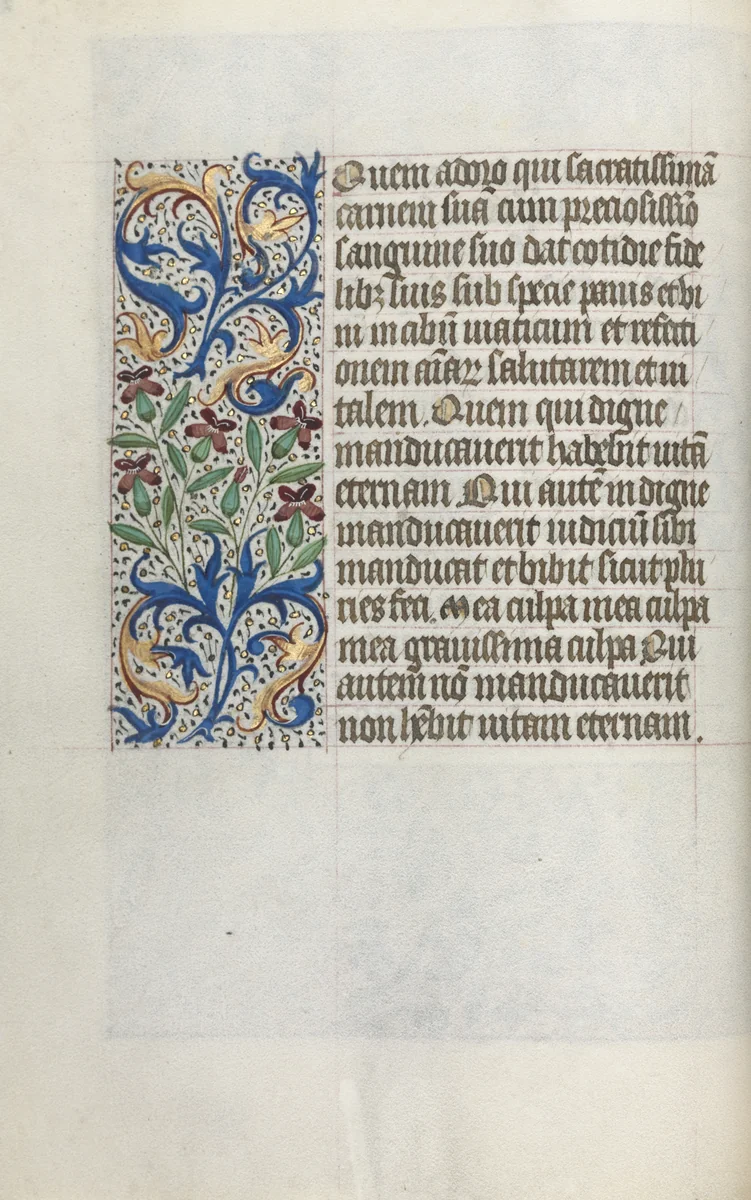 Quem adoro qui sacratissimā
carnem suā cum preciosissīō
sanguine suo dat cotidie fide
libꝫ suis sub specie panis et vi
ni in cibū uiaticum et refecti
onem aīaꝝ salutarem et ui
talem. Quem qui digne
manducauerit habebit uitā
eternam Qui autē indigne
manducauerit iudiciū sibi
manducat et bibit sicut phi
nes feci. Mea culpa mea culpa
mea grauissima culpa Qui
autem nō manducauerit
non hēbit uitam eternam.